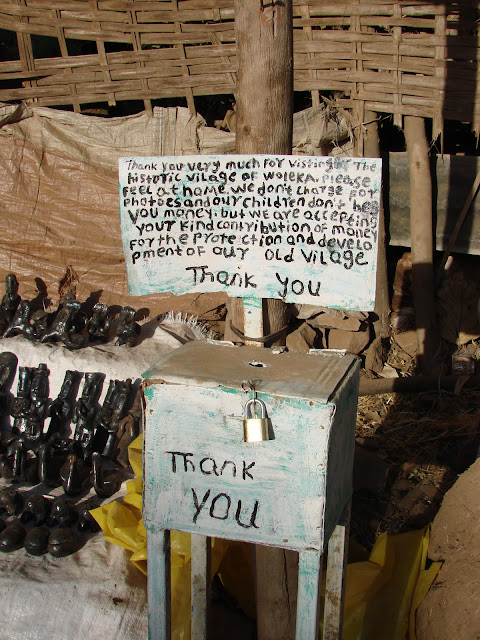 Thank you very much for visting The
historic vilage of woleka. please
feel at home. we don't charge for
photoes and our children don't beg
you money. but we are accepting
your kind contribution of money
for the protection and develo
pment of our old vilage
Thank you
Thank
you